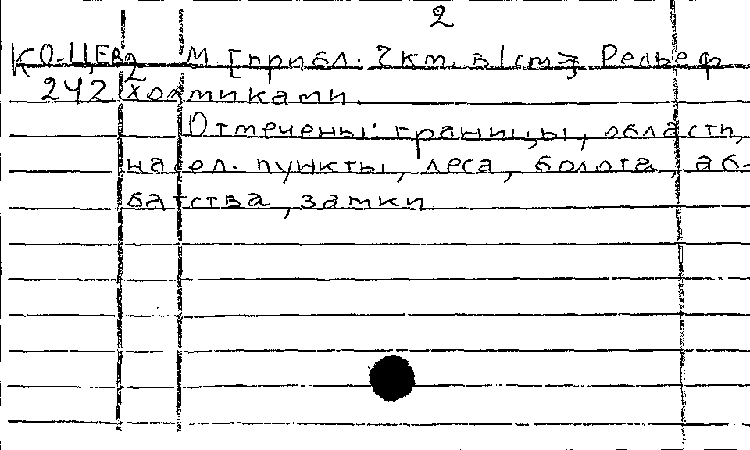 2
КО-ЦЕв М [прибл. 7 км. в 1 см] Рельеф
2
242 холмиками.
Отмечены: границы, области,
насел. пункты, леса, болота, аб-
батства, замки